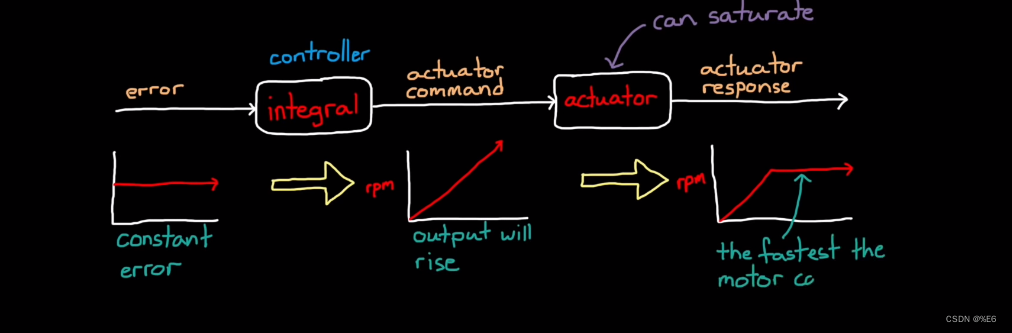 can saturate
controller
error
integral
actuator
command
actuator
actuator
response
rpm
rpm
constant
error
output will
rise
the fastest the
motor co
CSDN @%E6